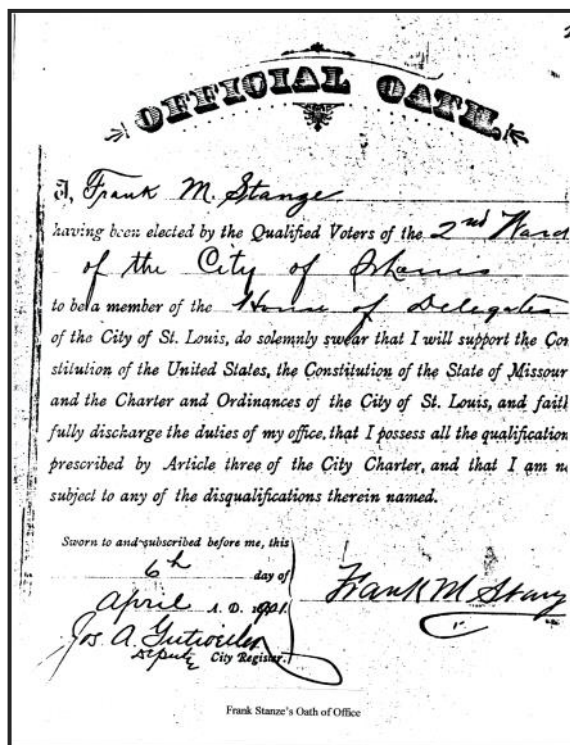 OFFICIAL OATH.
I, Frank M. Stanze
having been elected by the Qualified Voters of the 2nd Ward
of the City of St Louis
to be a member of the House of Delegates
of the City of St. Louis, do solemnly swear that I will support the Con
stitution of the United States, the Constitution of the State of Missour
and the Charter and Ordinances of the City of St. Louis, and faith
fully discharge the duties of my office, that I possess all the qualification
prescribed by Article three of the City Charter, and that I am n
subject to any of the disqualifications therein named.
Sworn to and subscribed before me, this
6th
day of
April A. D. 1901.
Jos. A. Gutweiler
Deputy City Register.
Frank M Stanz
Frank Stanze's Oath of Office